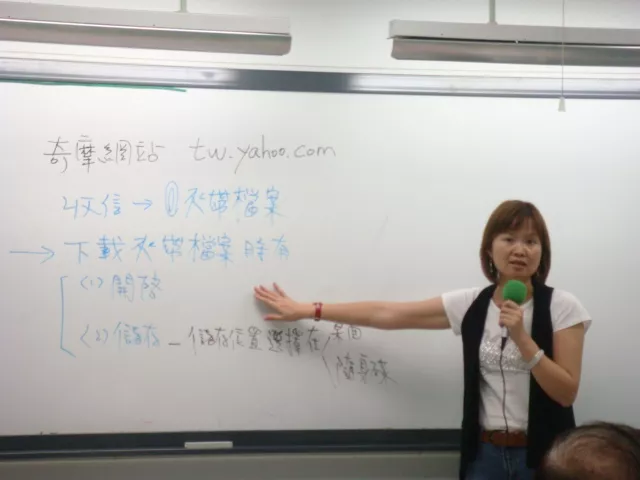 奇摩網站 tw.yahoo.com
收信→①夾帶檔案
→下載夾帶檔案時有
(1)開啟
(2)儲存-儲存位置選擇在 桌面
隨身碟